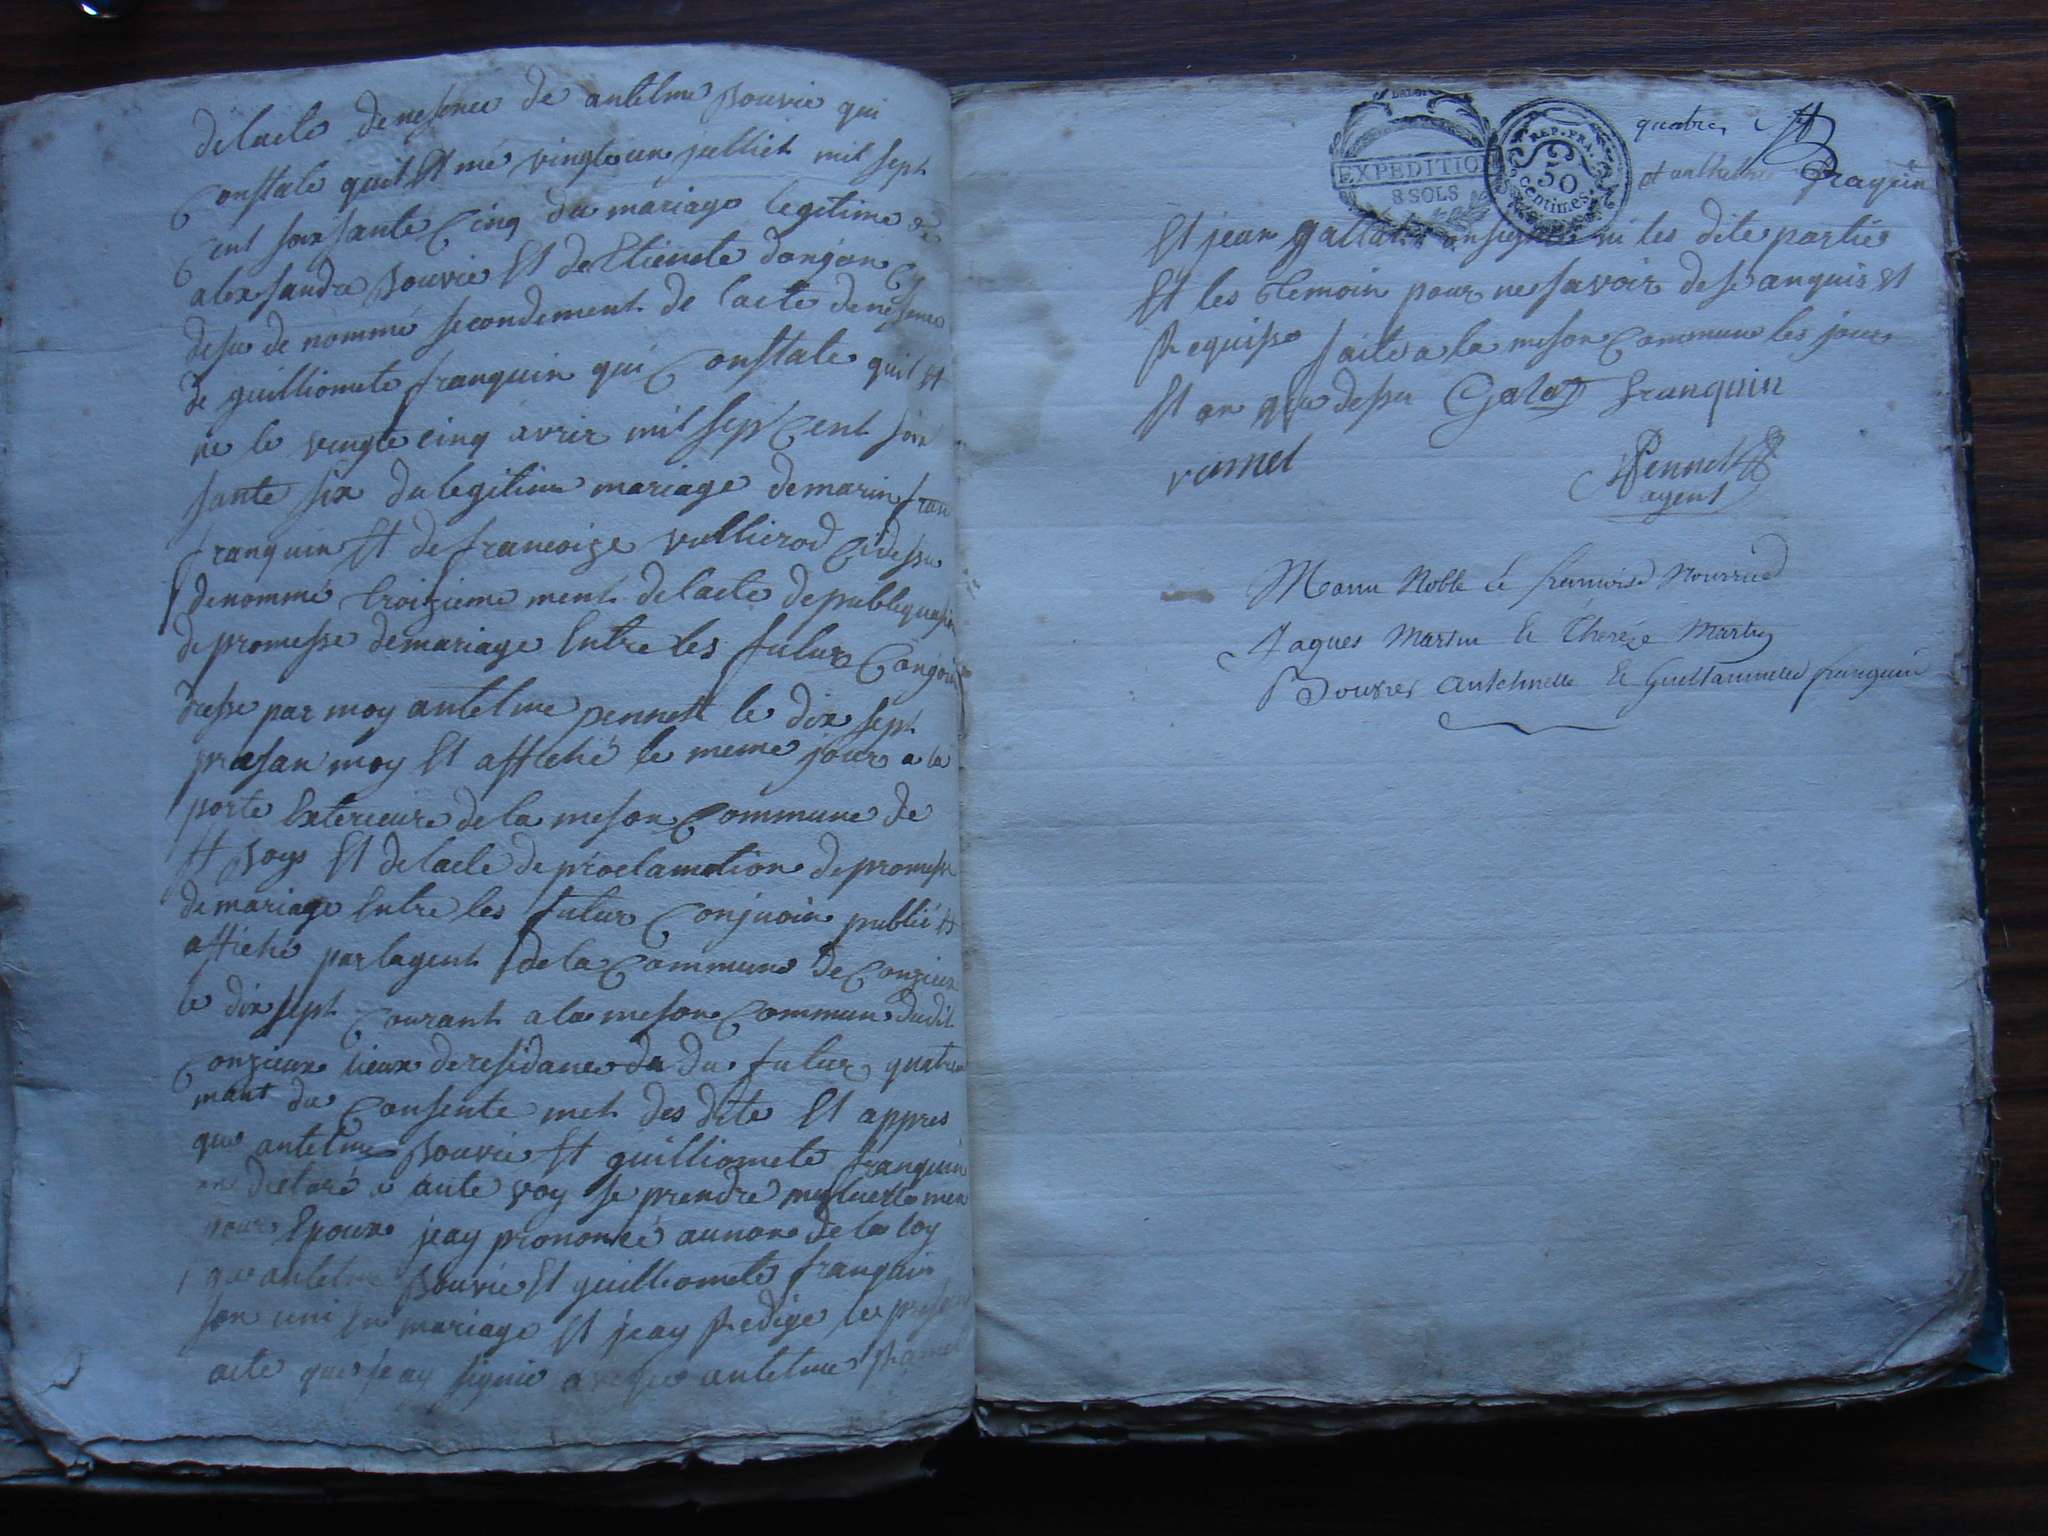 de lacte de nesence de antelme Bouvie qui
Constate quil Et né vingte un julliet mil sept
Cent soixsante Cinq du mariage legetime de
alexsandre Bouvie Et de Etienete donjon Cy
desu de nommé secondement de lacte de nesence
de guillionete franquin qui Constate quil Et
ne le vingte cinq avrir mil sept Cent soix
sante six du legitime mariage de marin fran
franquin Et de francoise vullierod Cidessu
denommé troizieme ment de lacte de publiquasion
de promesse de mariage Entre les futur Conjoin
dresse par moy antelme pennet le dix sept
presan moy Et affiché le meme jour a la
porte Exterieure de la meson Commune de
St Boys Et de lacte de proclamation de promesse
de mariage Entre les futur Conjoin publié Et
affiché par lagent de la Commune de Conzieux
le dix sept Courant a la meson Commun dudit
Conzieux lieux de residance du du futur quatrie
mant du Consente met des dite Et appres
que antelme Bouvie Et guillionete franquin
on declaré a aute voy se prendre mutuelle men
pour Epoux jeay prononcé au non de la loy
que antelme Bouvie Et guillionete franquin
son uni En mariage Et jeay Redige le presen
acte que jeay signié avesue antelme Ramel
EXPEDITION
8 SOLS
REP. FRA.
50
centimes
quatre
et anthelme fraquin
Et jean gallat onsignié ni les dite partie
Et les temoin pour ne savoir de se anquis Et
Requise faite a la meson Commune les jour
Et an que dessu Galat franquin
ramel
Pennet
agent
Marin Noble et francoise Nourrice
Jaques Martin et Thereze Martin
Bouvier antelmelle et Guillaumette franquin